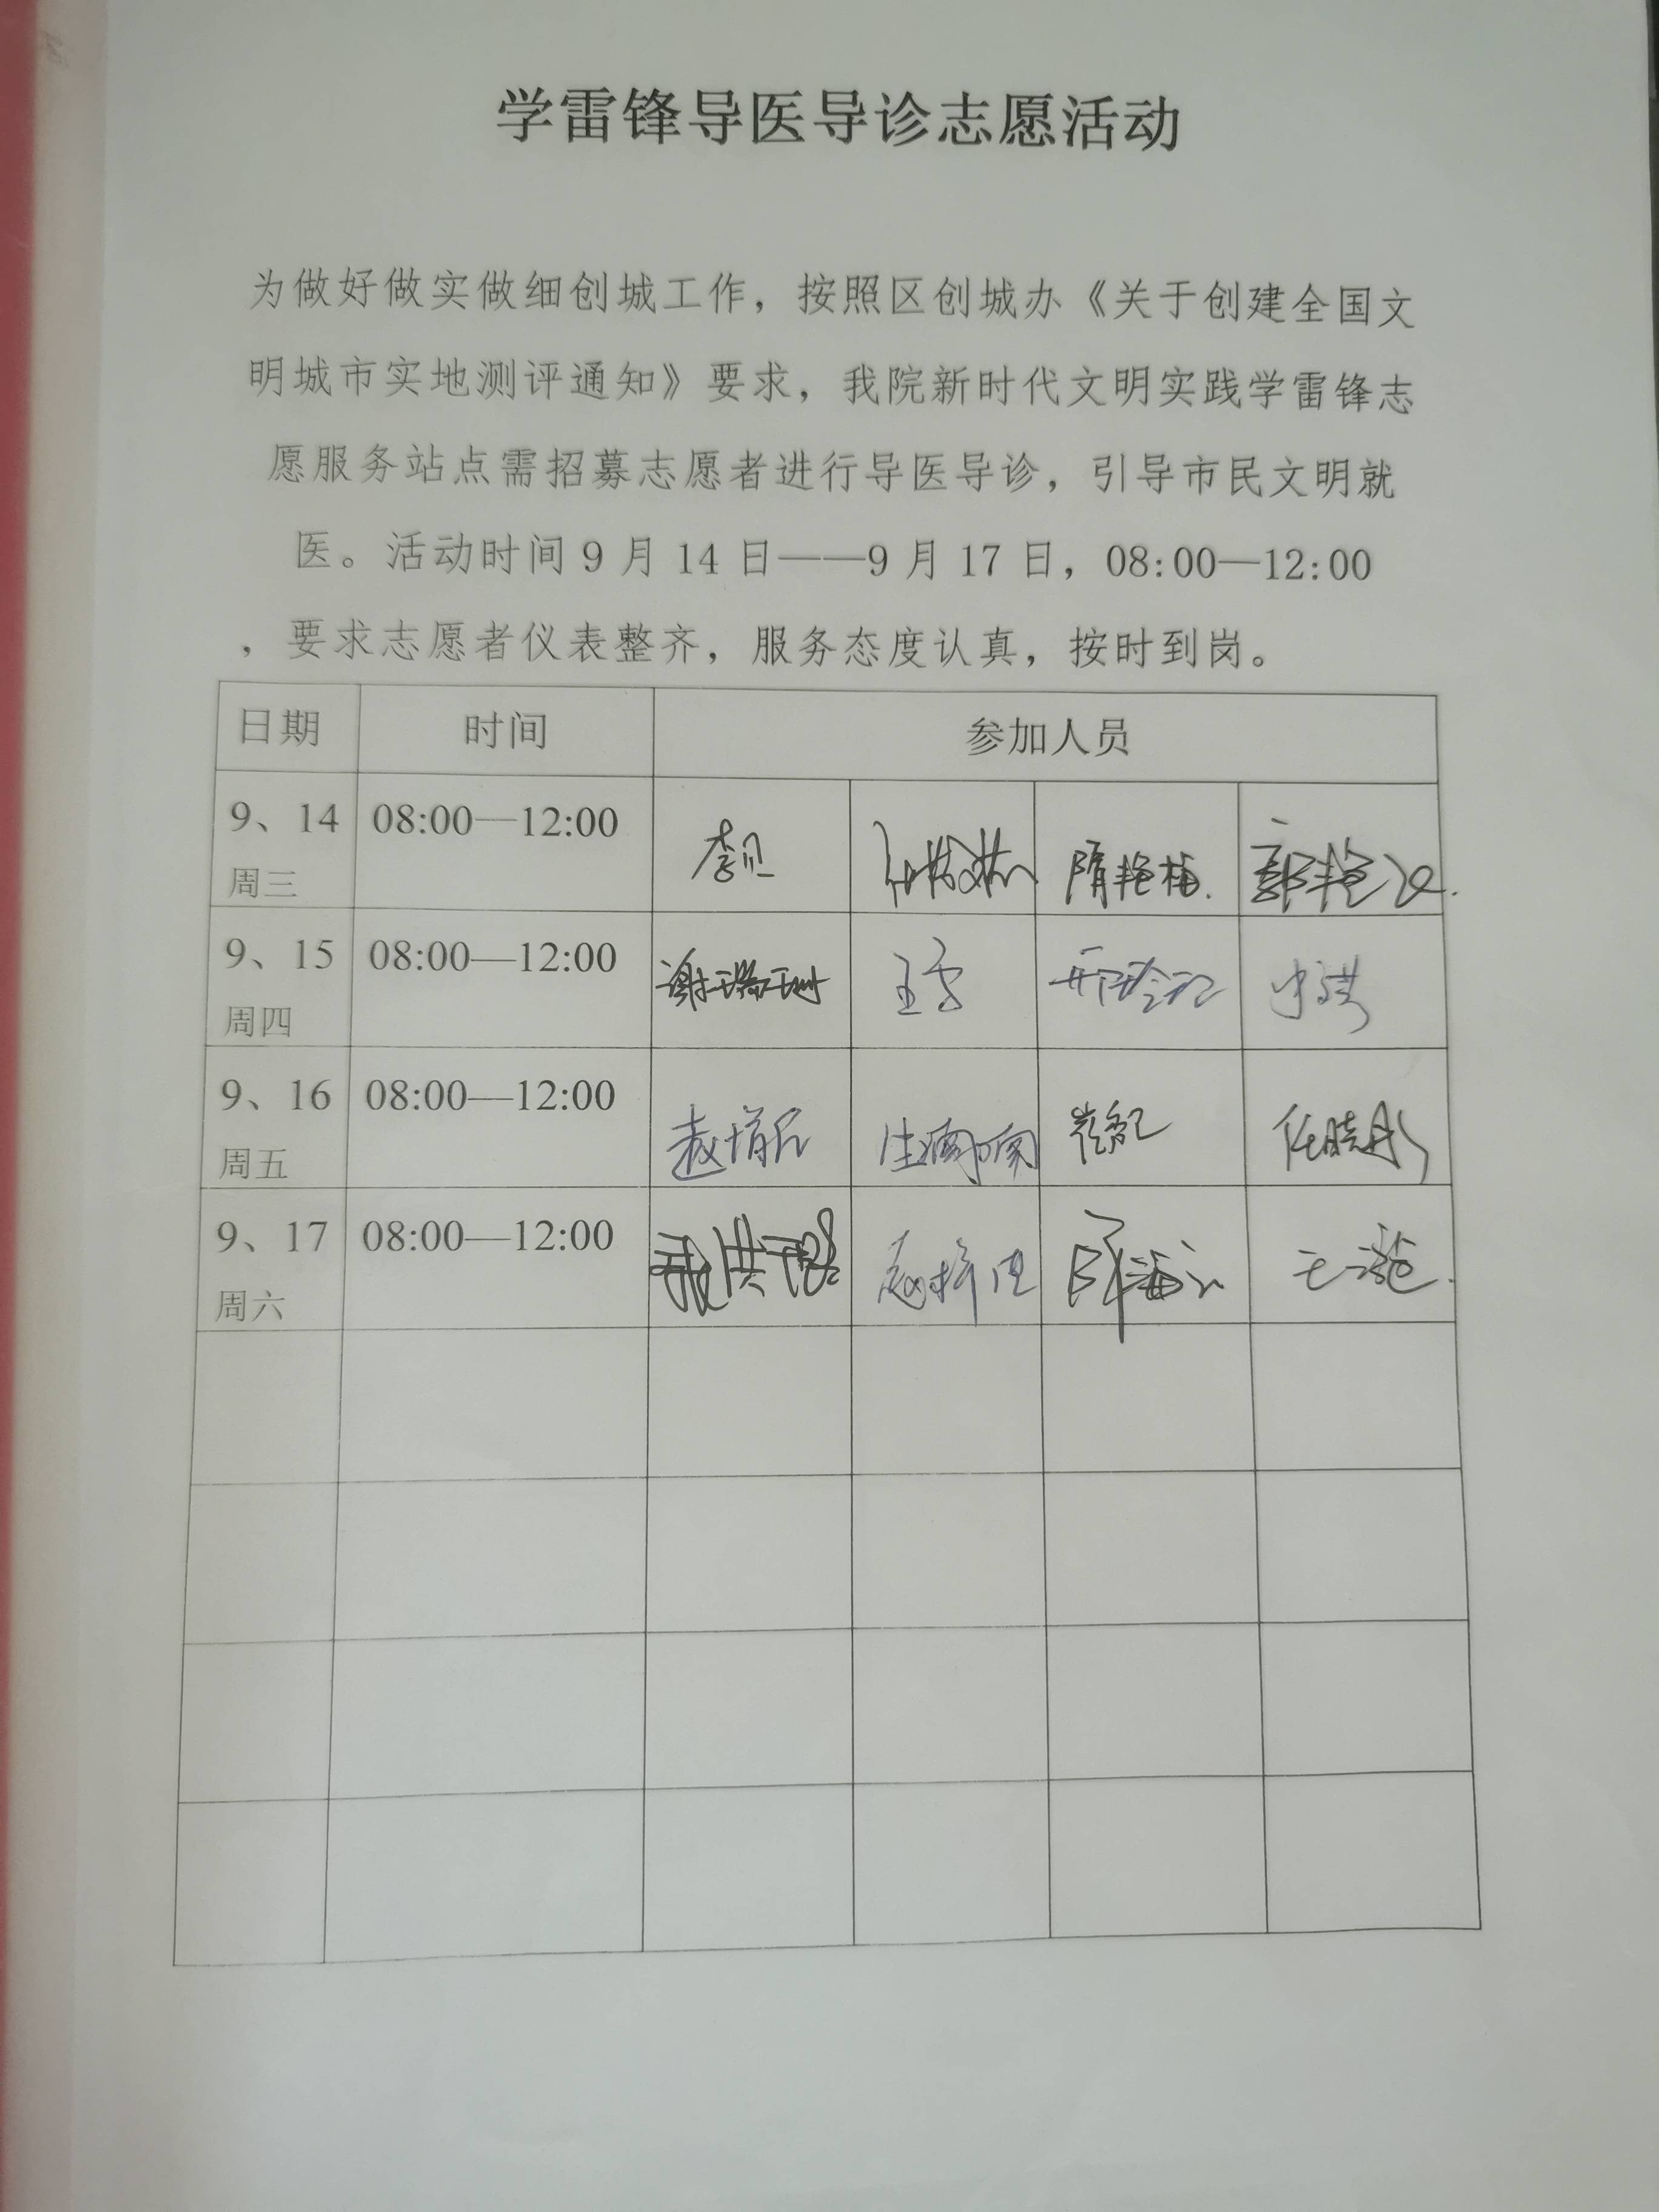 学雷锋导医导诊志愿活动
为做好做实做细创城工作，按照区创城办《关于创建全国文
明城市实地测评通知》要求，我院新时代文明实践学雷锋志
愿服务站点需招募志愿者进行导医导诊，引导市民文明就
医。活动时间9月14日——9月17日，08:00—12:00
，要求志愿者仪表整齐，服务态度认真，按时到岗。
日期 时间 参加人员
9、14 08:00—12:00
周三 李贝 隋艳梅.
9、15 08:00—12:00
周四 谢瑞珊 王雪
9、16 08:00—12:00
周五 任晓彤
9、17 08:00—12:00
周六